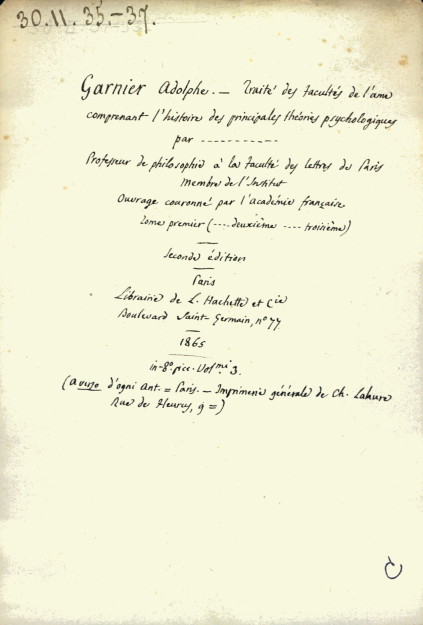 30.11.35-37.
Garnier Adolphe. — Traité des facultés de l'ame
comprenant l'histoire des principales théories psychologiques
par -----------
Professeur de philosophie à la faculté des lettres de Paris
Membre de l'Institut
Ouvrage couronné par l'académie française
Tome premier (---- deuxième ---- troisième)
Seconde édition
Paris
Librairie de L. Hachette et Cie
Boulevard Saint-Germain, nº 77
1865
in-8º. picc. Volmi 3.
(a verso d'ogni ant. = Paris. — Imprimerie générale de Ch. Lahure
Rue de Fleurus, 9 =)